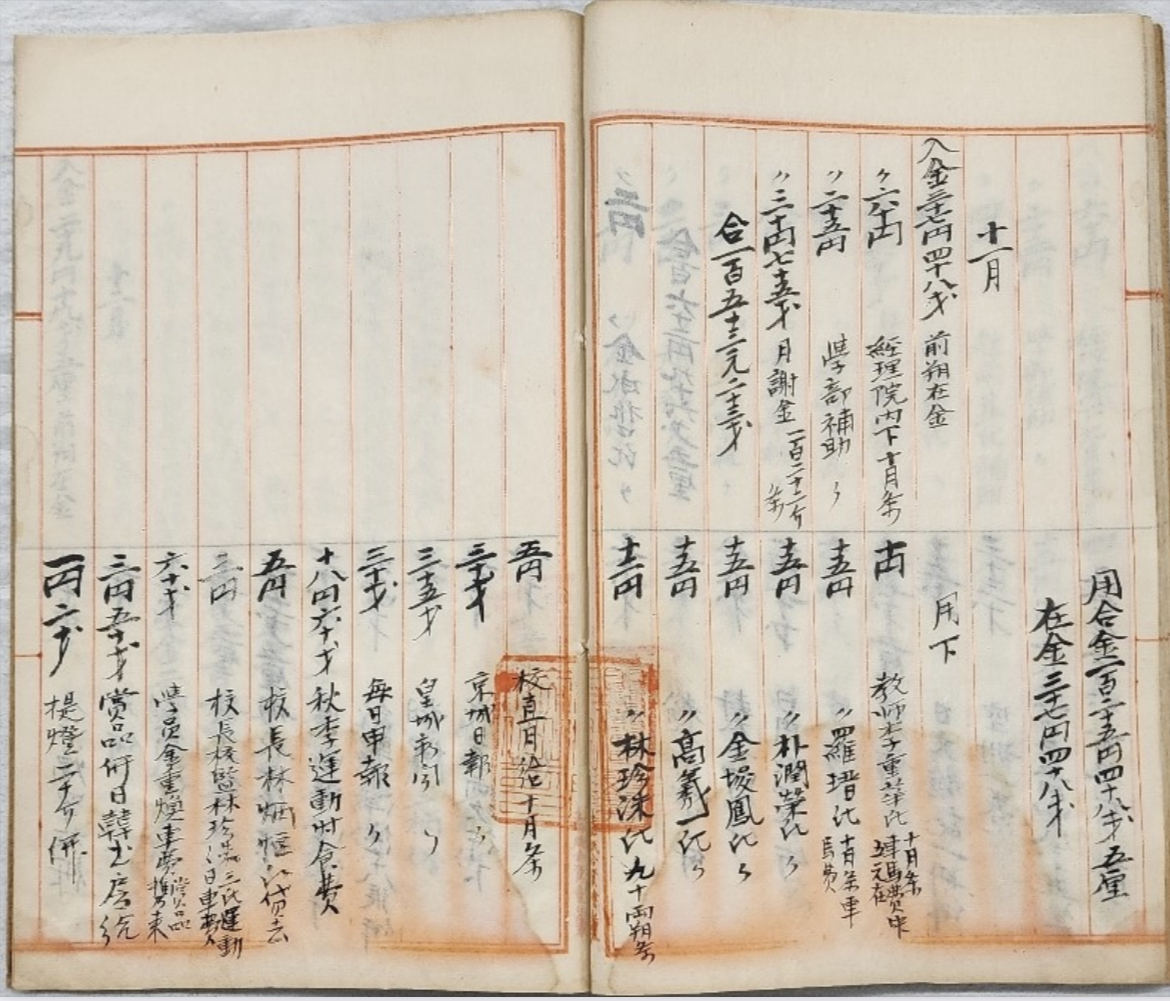 用合金一百二十五円四十八戔五厘
在金三十七円四十八戔
十一月
入金三十七円四十八戔 前朔在金
〃六十円 経理院内下十月条
〃二十五円 學部補助 〃
〃三十円七十五戔 月謝金 一百二十三介条
合一百五十三元二十三戔
用下
十円 教師李重華氏 十月条
車馬費中
五元在
十五円 〃 羅瑨氏 十月条車
馬費
十五円 〃 朴潤榮氏 〃
十五円 〃 金埈鳳氏 〃
十五円 〃 高羲一氏 〃
十二円 〃 林珍洙氏 九十両朔条
五円 校直月給十月条
三十戔 京城日報 〃
三十五戔 皇城新聞 〃
三十戔 每日申報 〃
十八円六十戔 秋季運動時食費
五円 校長林炳恒氏貸去
三円 校長校監林珍洙三氏運動
之日車費
六十戔 學員金重煥車費賞品
携来
三円五十戔 賞品倂日韓書房
一円六戔 提燈二十介倂